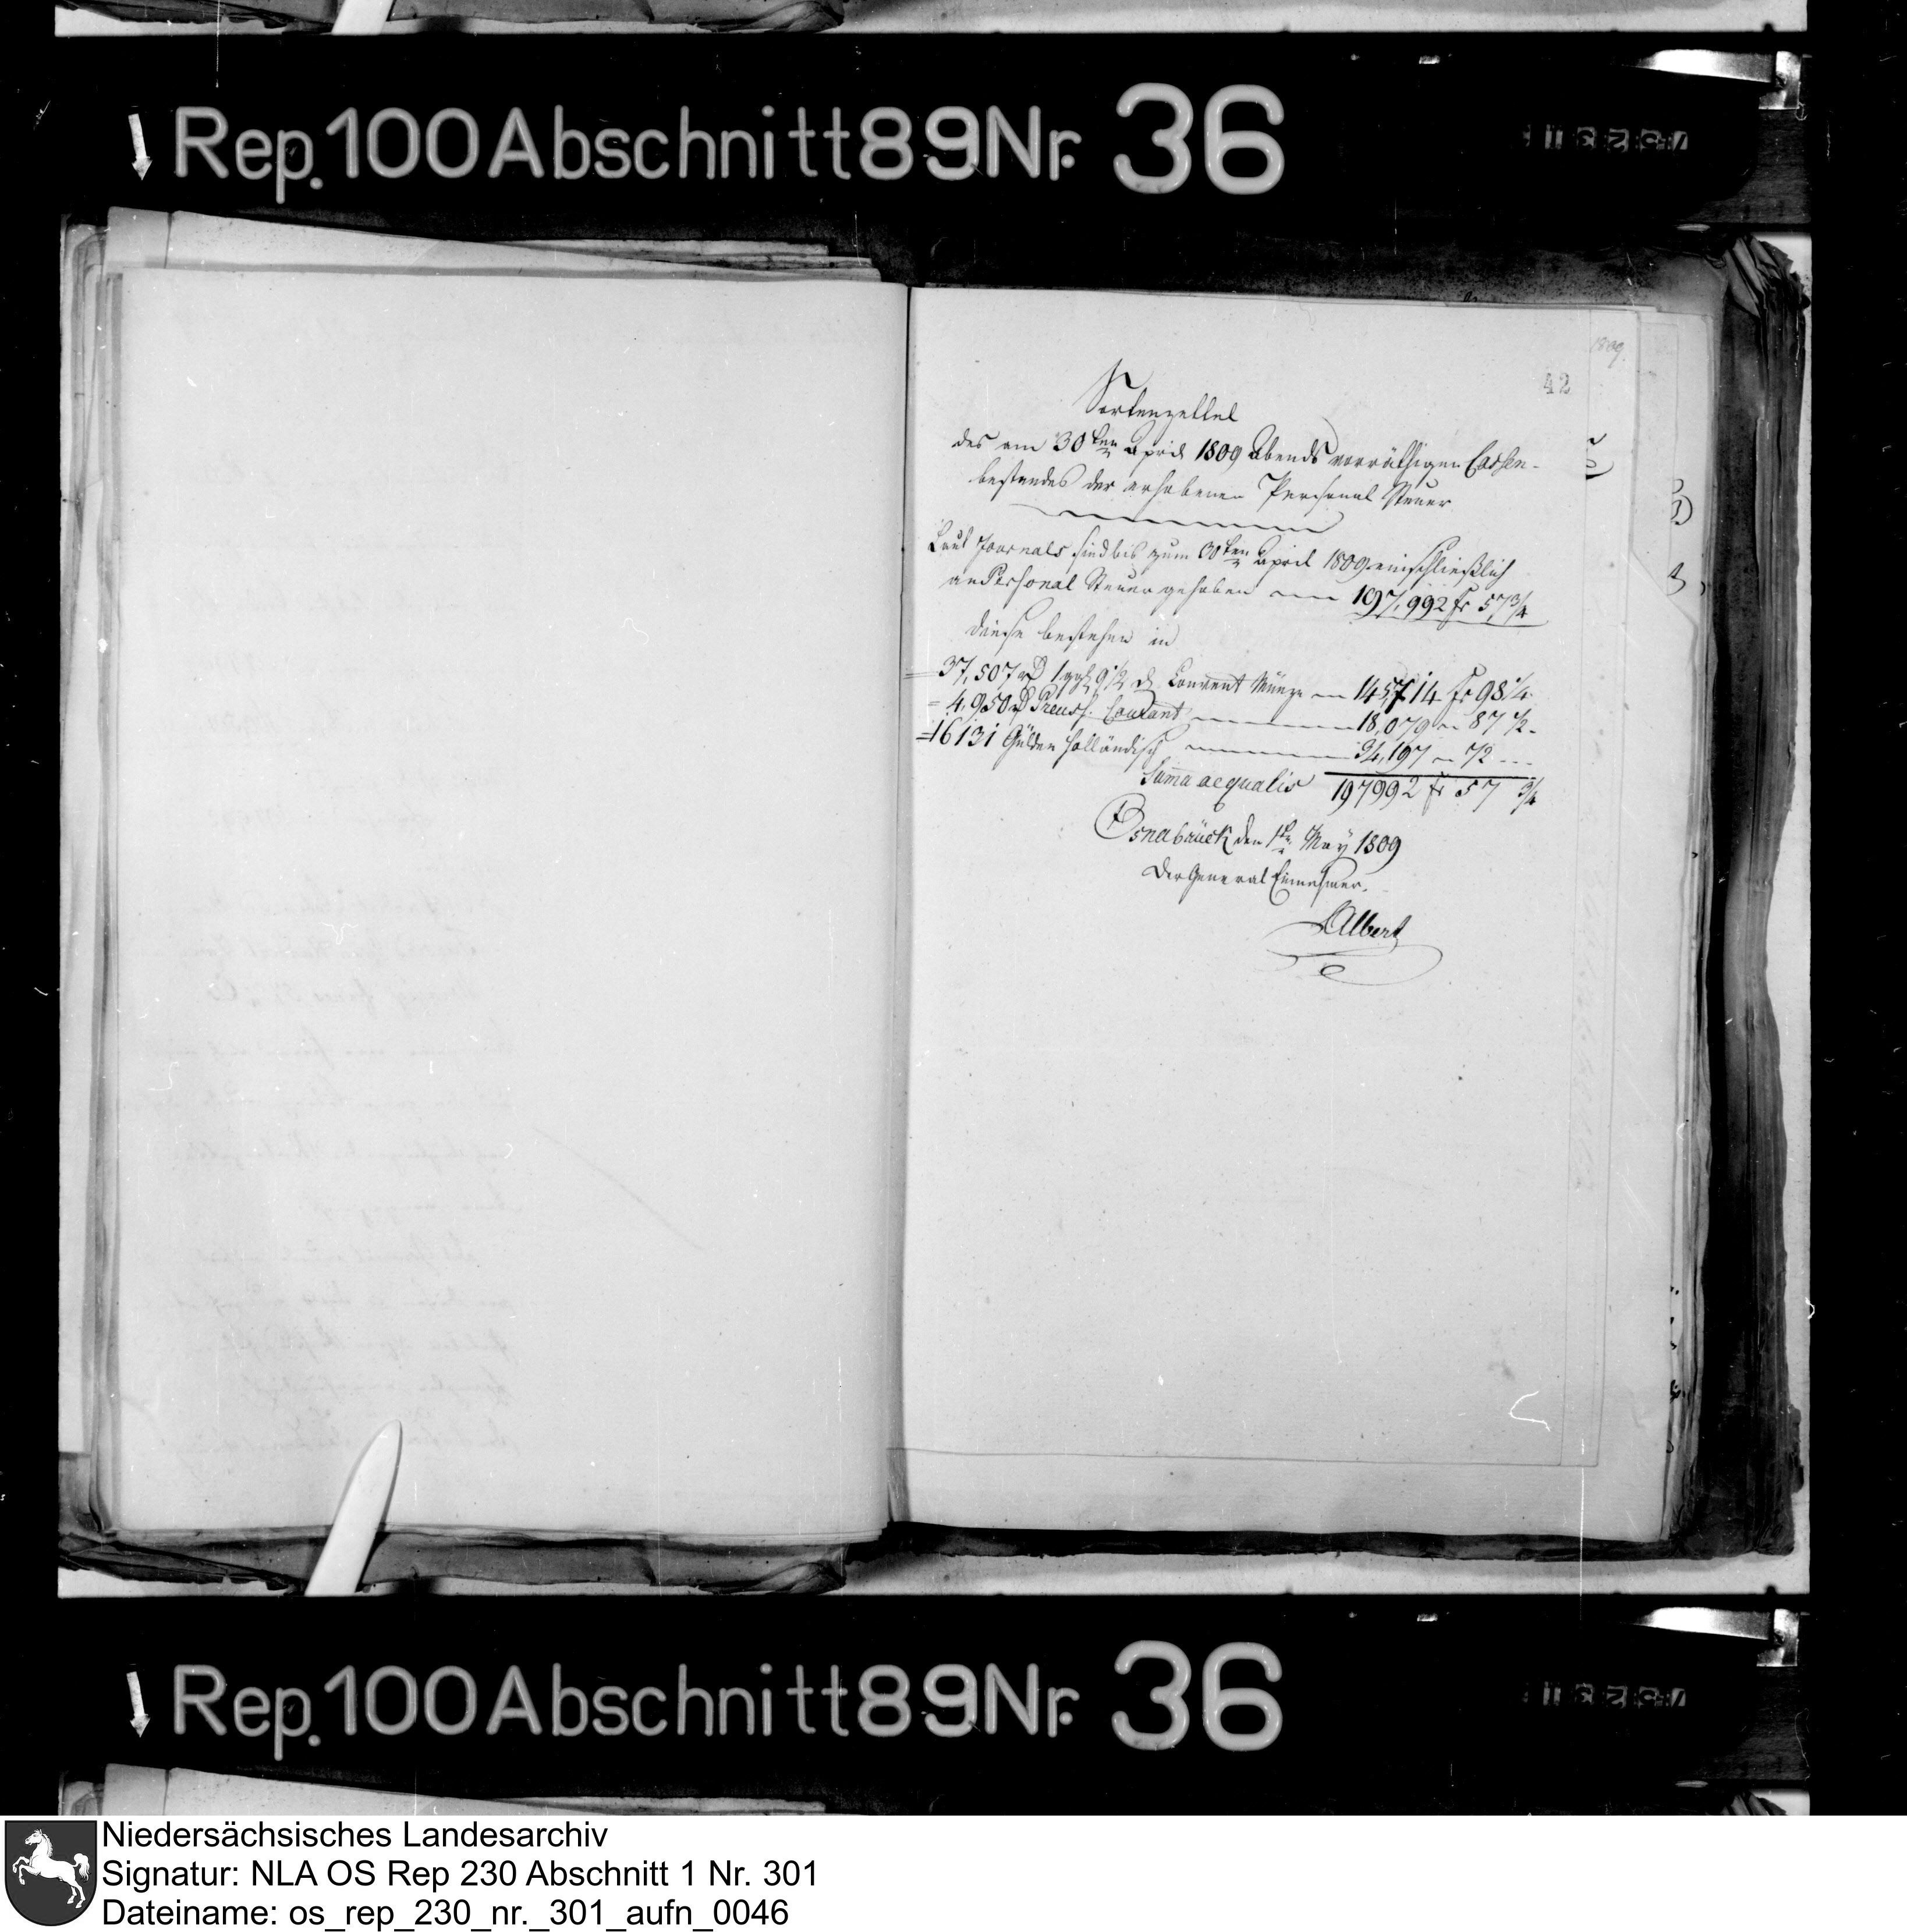 Rep. 100 Abschnitt 89 Nr. 36
1809.
42
Sortenzettel
des am 30ten April 1809 Abends vorräthigen Cassen-
bestandes der erhobenen Personal Steuer
Laut Journals sind bis zum 30ten April 1809 einschließlich
an Personal Steuer gehoben 197,992 fr 57 3/4
diese bestehen in
= 37,507 rthl 1 ggl 9 1/2 d Convent Münze 145,714 fr 98 1/4
= 4,950 rthl Preuss. Courant 18,079 " 87 1/2
= 16131 Gülden holländisch 34,197 " 72
Suma aequalis 197992 fr 57 3/4
Osnabrück den 1ten May 1809
Der General Einnehmer.
Albert
Rep. 100 Abschnitt 89 Nr. 36
Niedersächsisches Landesarchiv
Signatur: NLA OS Rep 230 Abschnitt 1 Nr. 301
Dateiname: os_rep_230_nr._301_aufn_0046